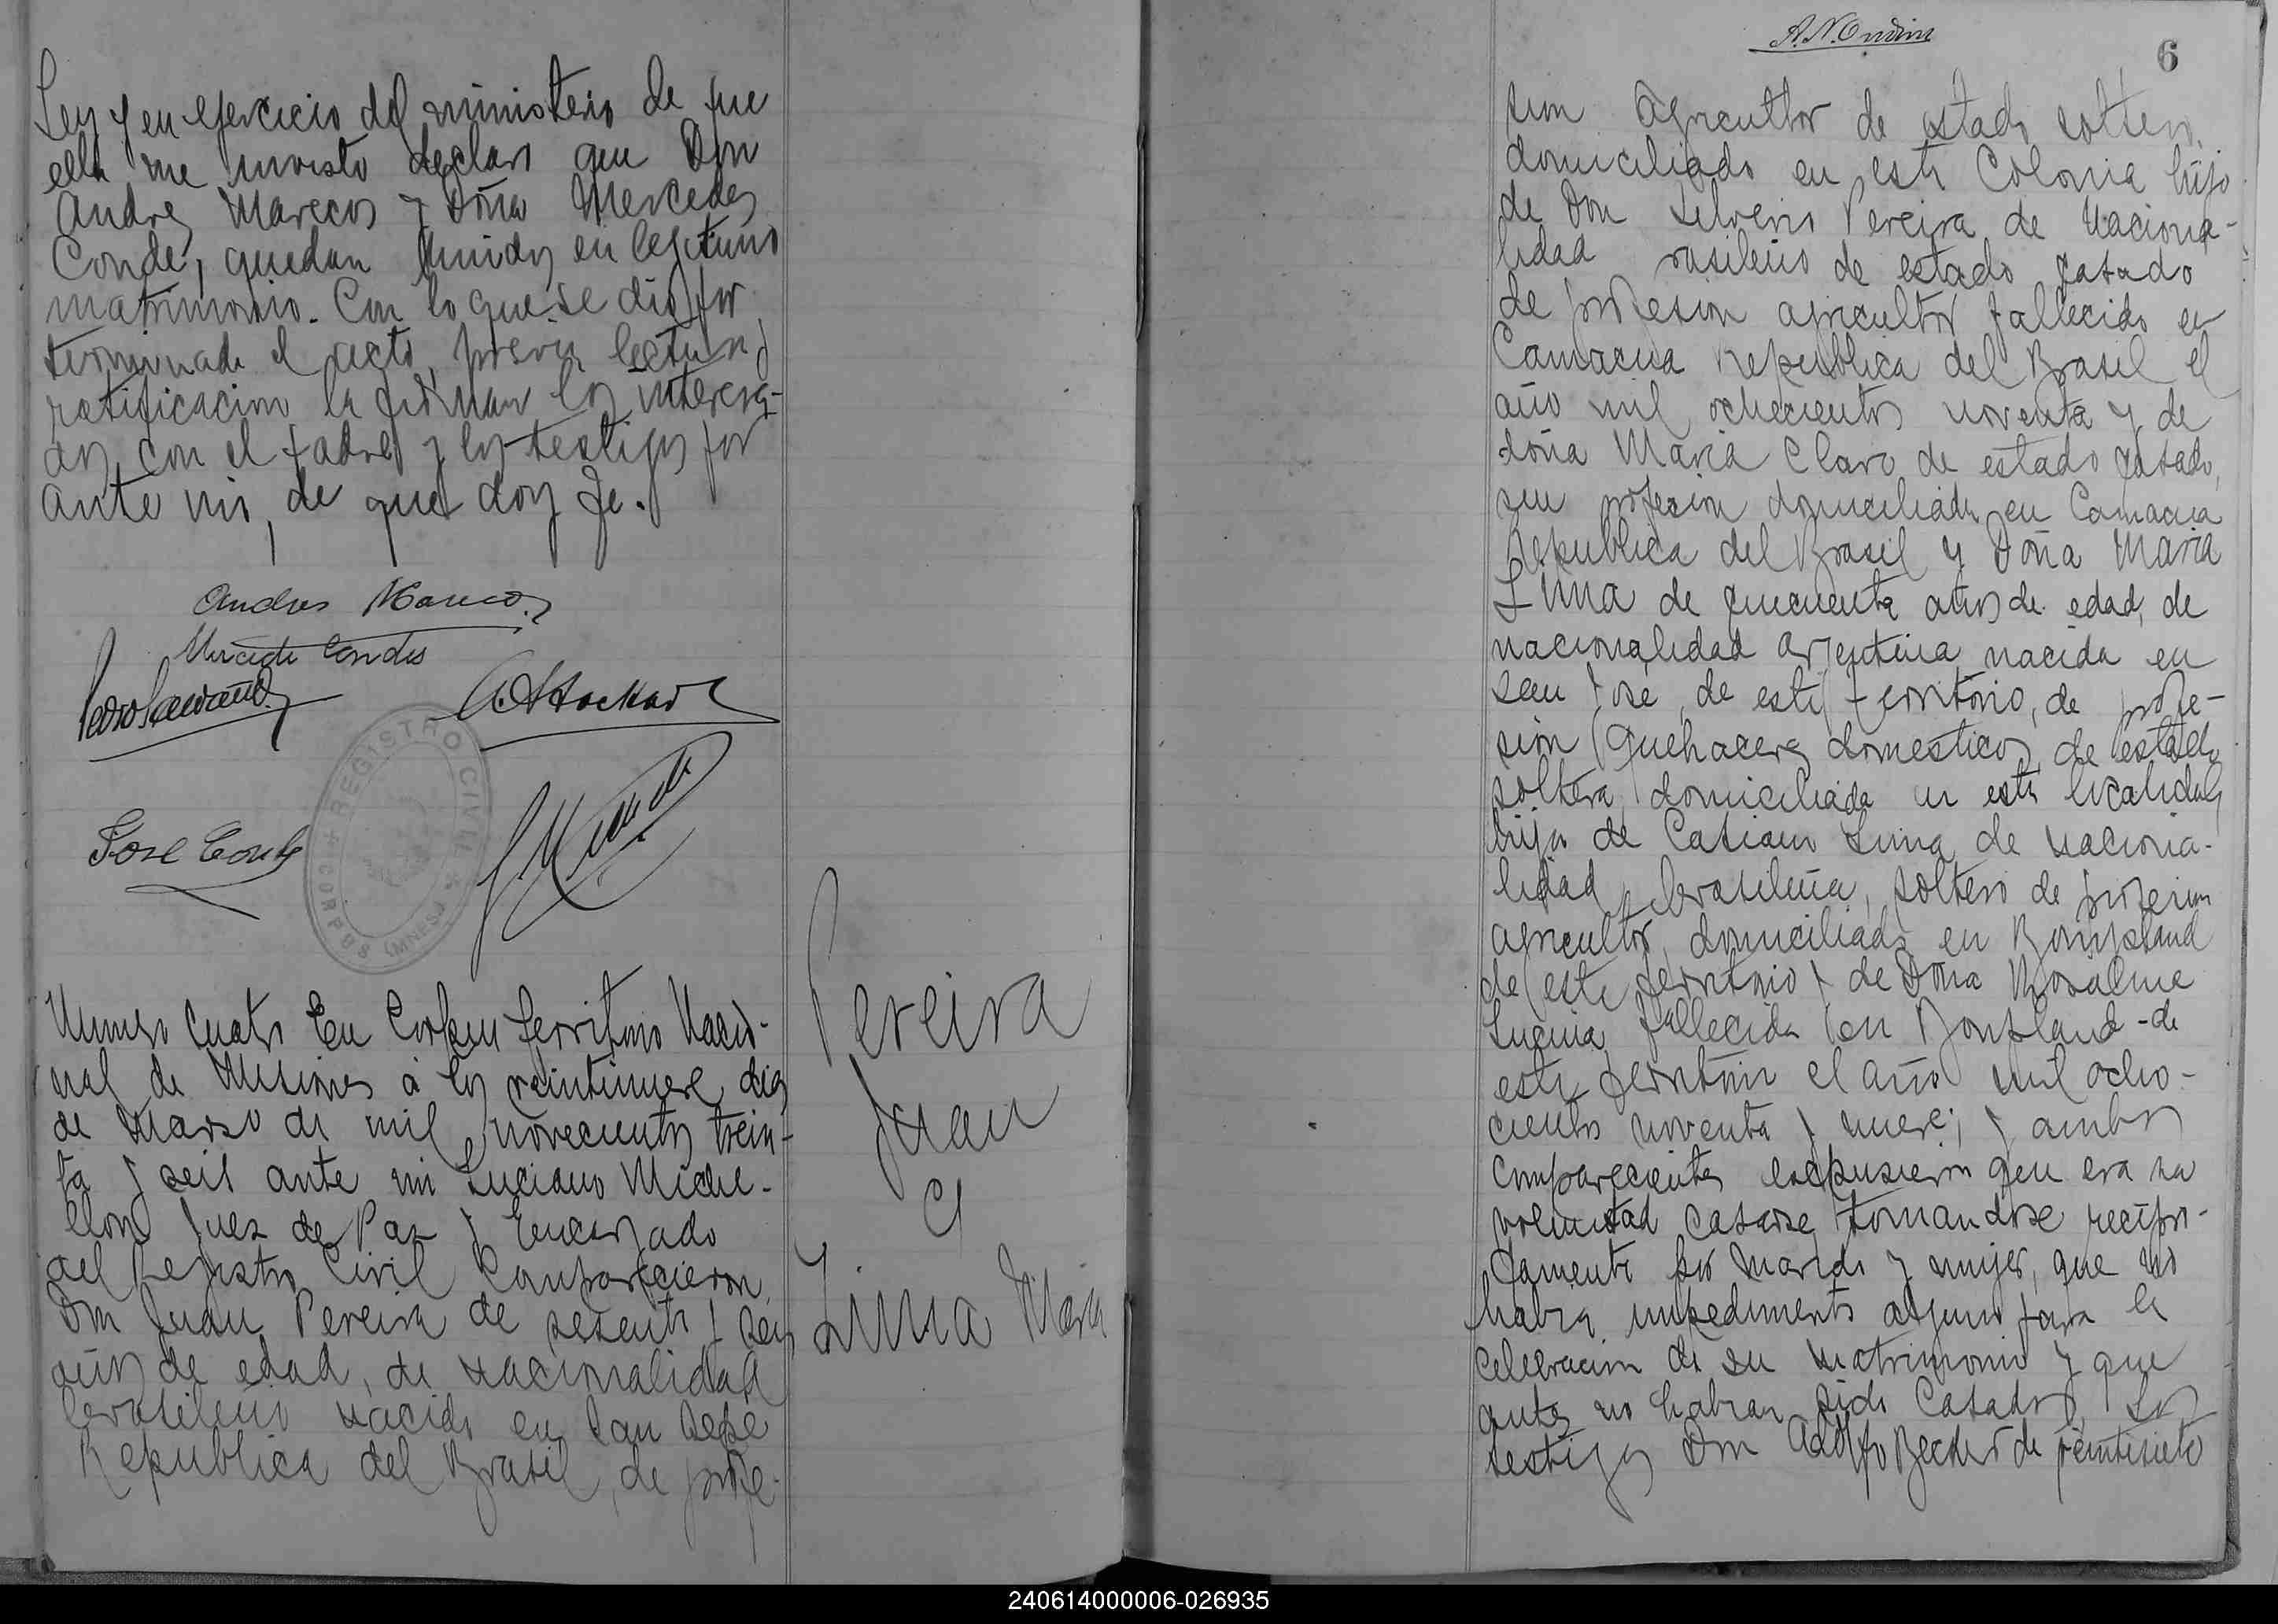 Ley y en ejercicio del ministerio de que
ella me invisto declaro que Don
Andres Marecos y Doña Mercedes
Conde, quedan unidos en legitimo
matrimonio. Con lo que se dió por
terminado el acto, previa lectura y
ratificacion la firman los interesa-
dos con el padre y los testigos por
ante mi, de que doy fe.
Andres Marecos
Mercedes Condes
José Conde
REGISTRO CIVIL
CORPUS (MNES.)
Numero Cuatro En Corpus Territorio Nacio-
nal de Misiones á los veintinueve dias
de Marzo de mil novecientos trein-
ta y seis ante mi Luciano Miche-
llon Juez de Paz y Encargado
del Registro Civil Comparecieron
Don Juan Pereira de sesenta y seis
años de edad, de nacionalidad
brasileño nacido en San Sepe
Republica del Brasil, de profe-
Pereira
Juan
y
Lima Maria
6
sion Agricultor de estado soltero
domiciliado en esta Colonia hijo
de Don Silverio Pereira de naciona-
lidad rasileño de estado casado
de profesion agricultor fallecido en
Camacua Republica del Brasil el
año mil ochecientos noventa y de
doña Maria Claro de estado casado,
sin profesion domiciliada en Camacua
Republica del Brasil y Doña Maria
Lima de cincuenta años de edad, de
nacionalidad argentina nacida en
San José, de este territorio, de profe-
sion quehaceres domesticos de estado
soltera domiciliada en esta localidad,
hija de Casiano Lima de naciona-
lidad brasileña, soltero de profesion
agricultor, domiciliado en Bonpland
de este territorio y de Doña
fallecida en Bonpland - de
este territorio el año mil ocho-
cientos noventa y nueve; y ambos
comparecientes expusieron que era su
voluntad casarse tomandose recipro-
camente por marido y mujer, que no
habia impedimento alguno para la
celebracion de su matrimonio y que
antes no habian sido casados. Los
testigos Don Adolfo Becker de veintisiete
240614000006-026935